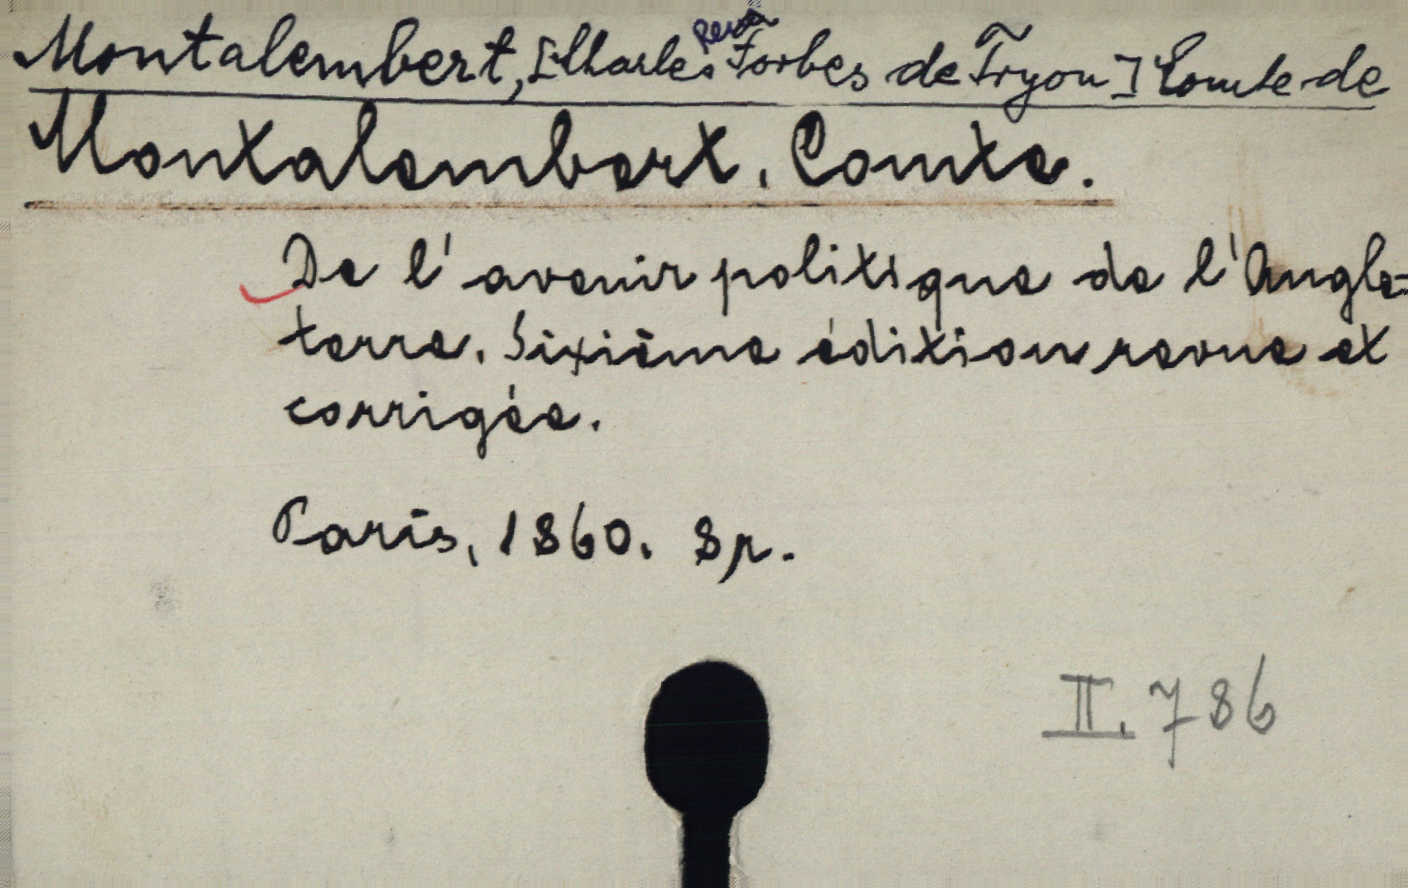 Montalembert, [Charles René Forbes de Tryon] Comte de
Montalembert, Comte.
De l'avenir politique de l'Angle-
terre. Sixième édition revue et
corrigée.
Paris, 1860. 8r.
II. 786